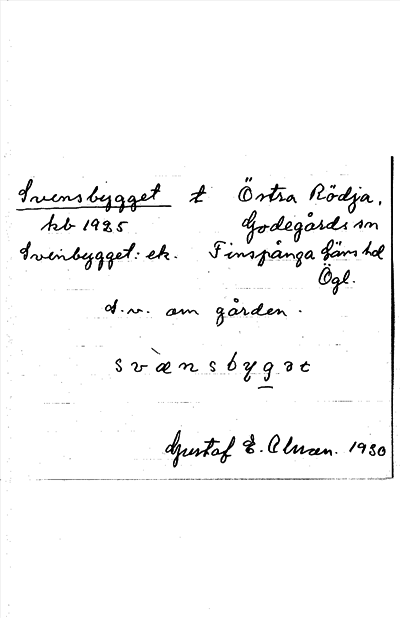 Svensbygget t Östra Rödja,
kb 1925 Godegårds sn
Svinbygget: ek. Finspånga läns hd
Ögl.
S.v. om gården.
svæ̀nsbygət
Gustaf E. Alman. 1930